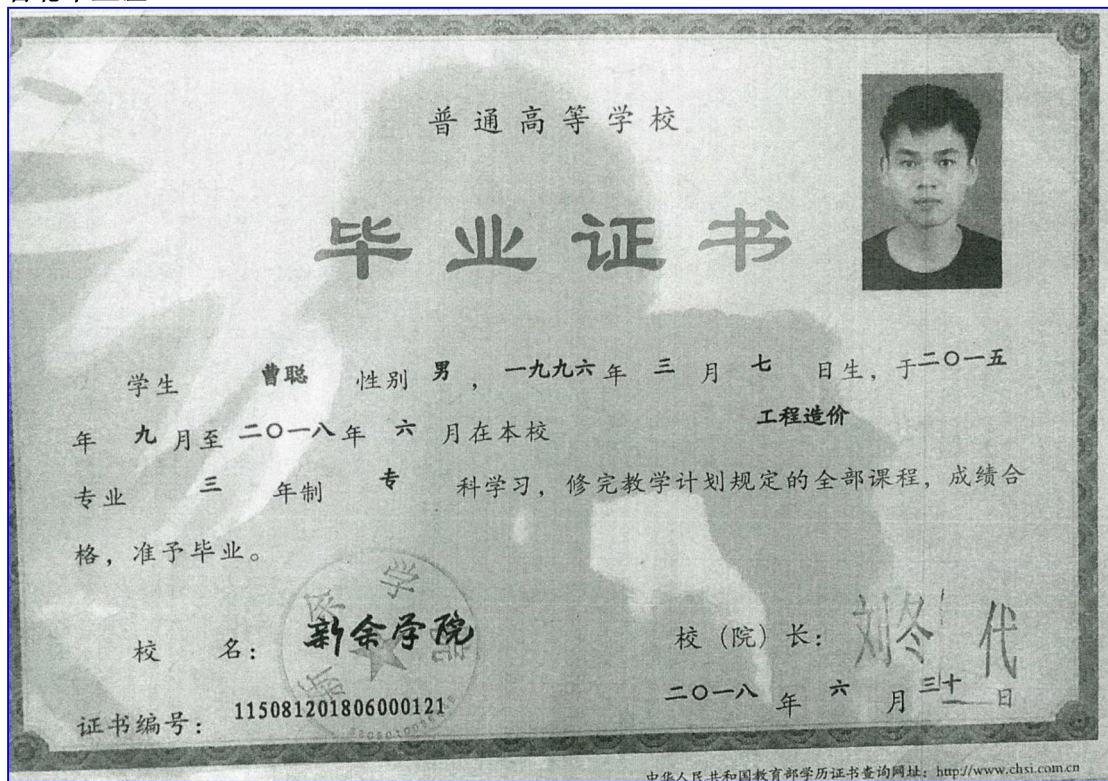 普通高等学校
毕业证书
学生 曹聪 性别 男 ，一九九六 年 三 月 七 日生，于二〇一五
年 九 月至 二〇一八 年 六 月在本校 工程造价
专业 三 年制 专 科学习，修完教学计划规定的全部课程，成绩合
格，准予毕业。
校 名： 新余学院 校（院）长： 刘冬 代
二〇一八 年 六 月 三十 日
证书编号： 115081201806000121
中华人民共和国教育部学历证书查询网址：http://www.chsi.com.cn